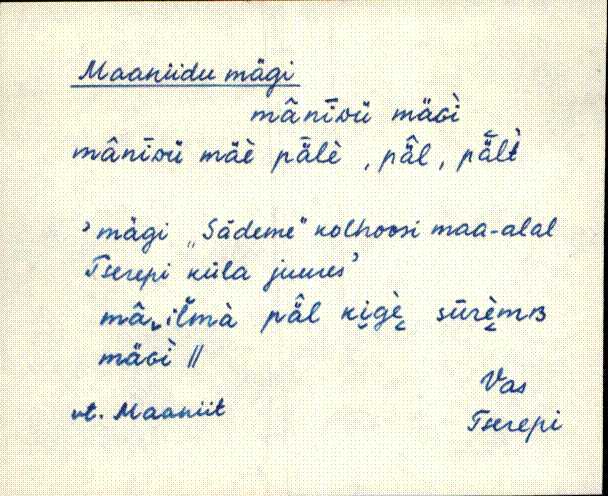 Maaniidu mägi
mânīᴅü mäɢì
mânīᴅü mäè pǟlè, pä̂l, pä̭̂lt̀
’mägi „Sädeme“ kolhoosi maa-alal
Tserepi küla juures’
mâ ilmà pä̂l ki̬gè̬ sūrè̬mʙ
mäɢì ||
vt. Maaniit
Vas
Tserepi